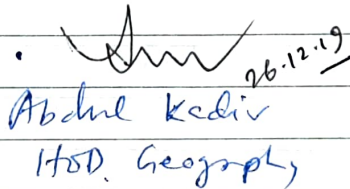 26.12.19
Abdul Kadir
HOD. Geography